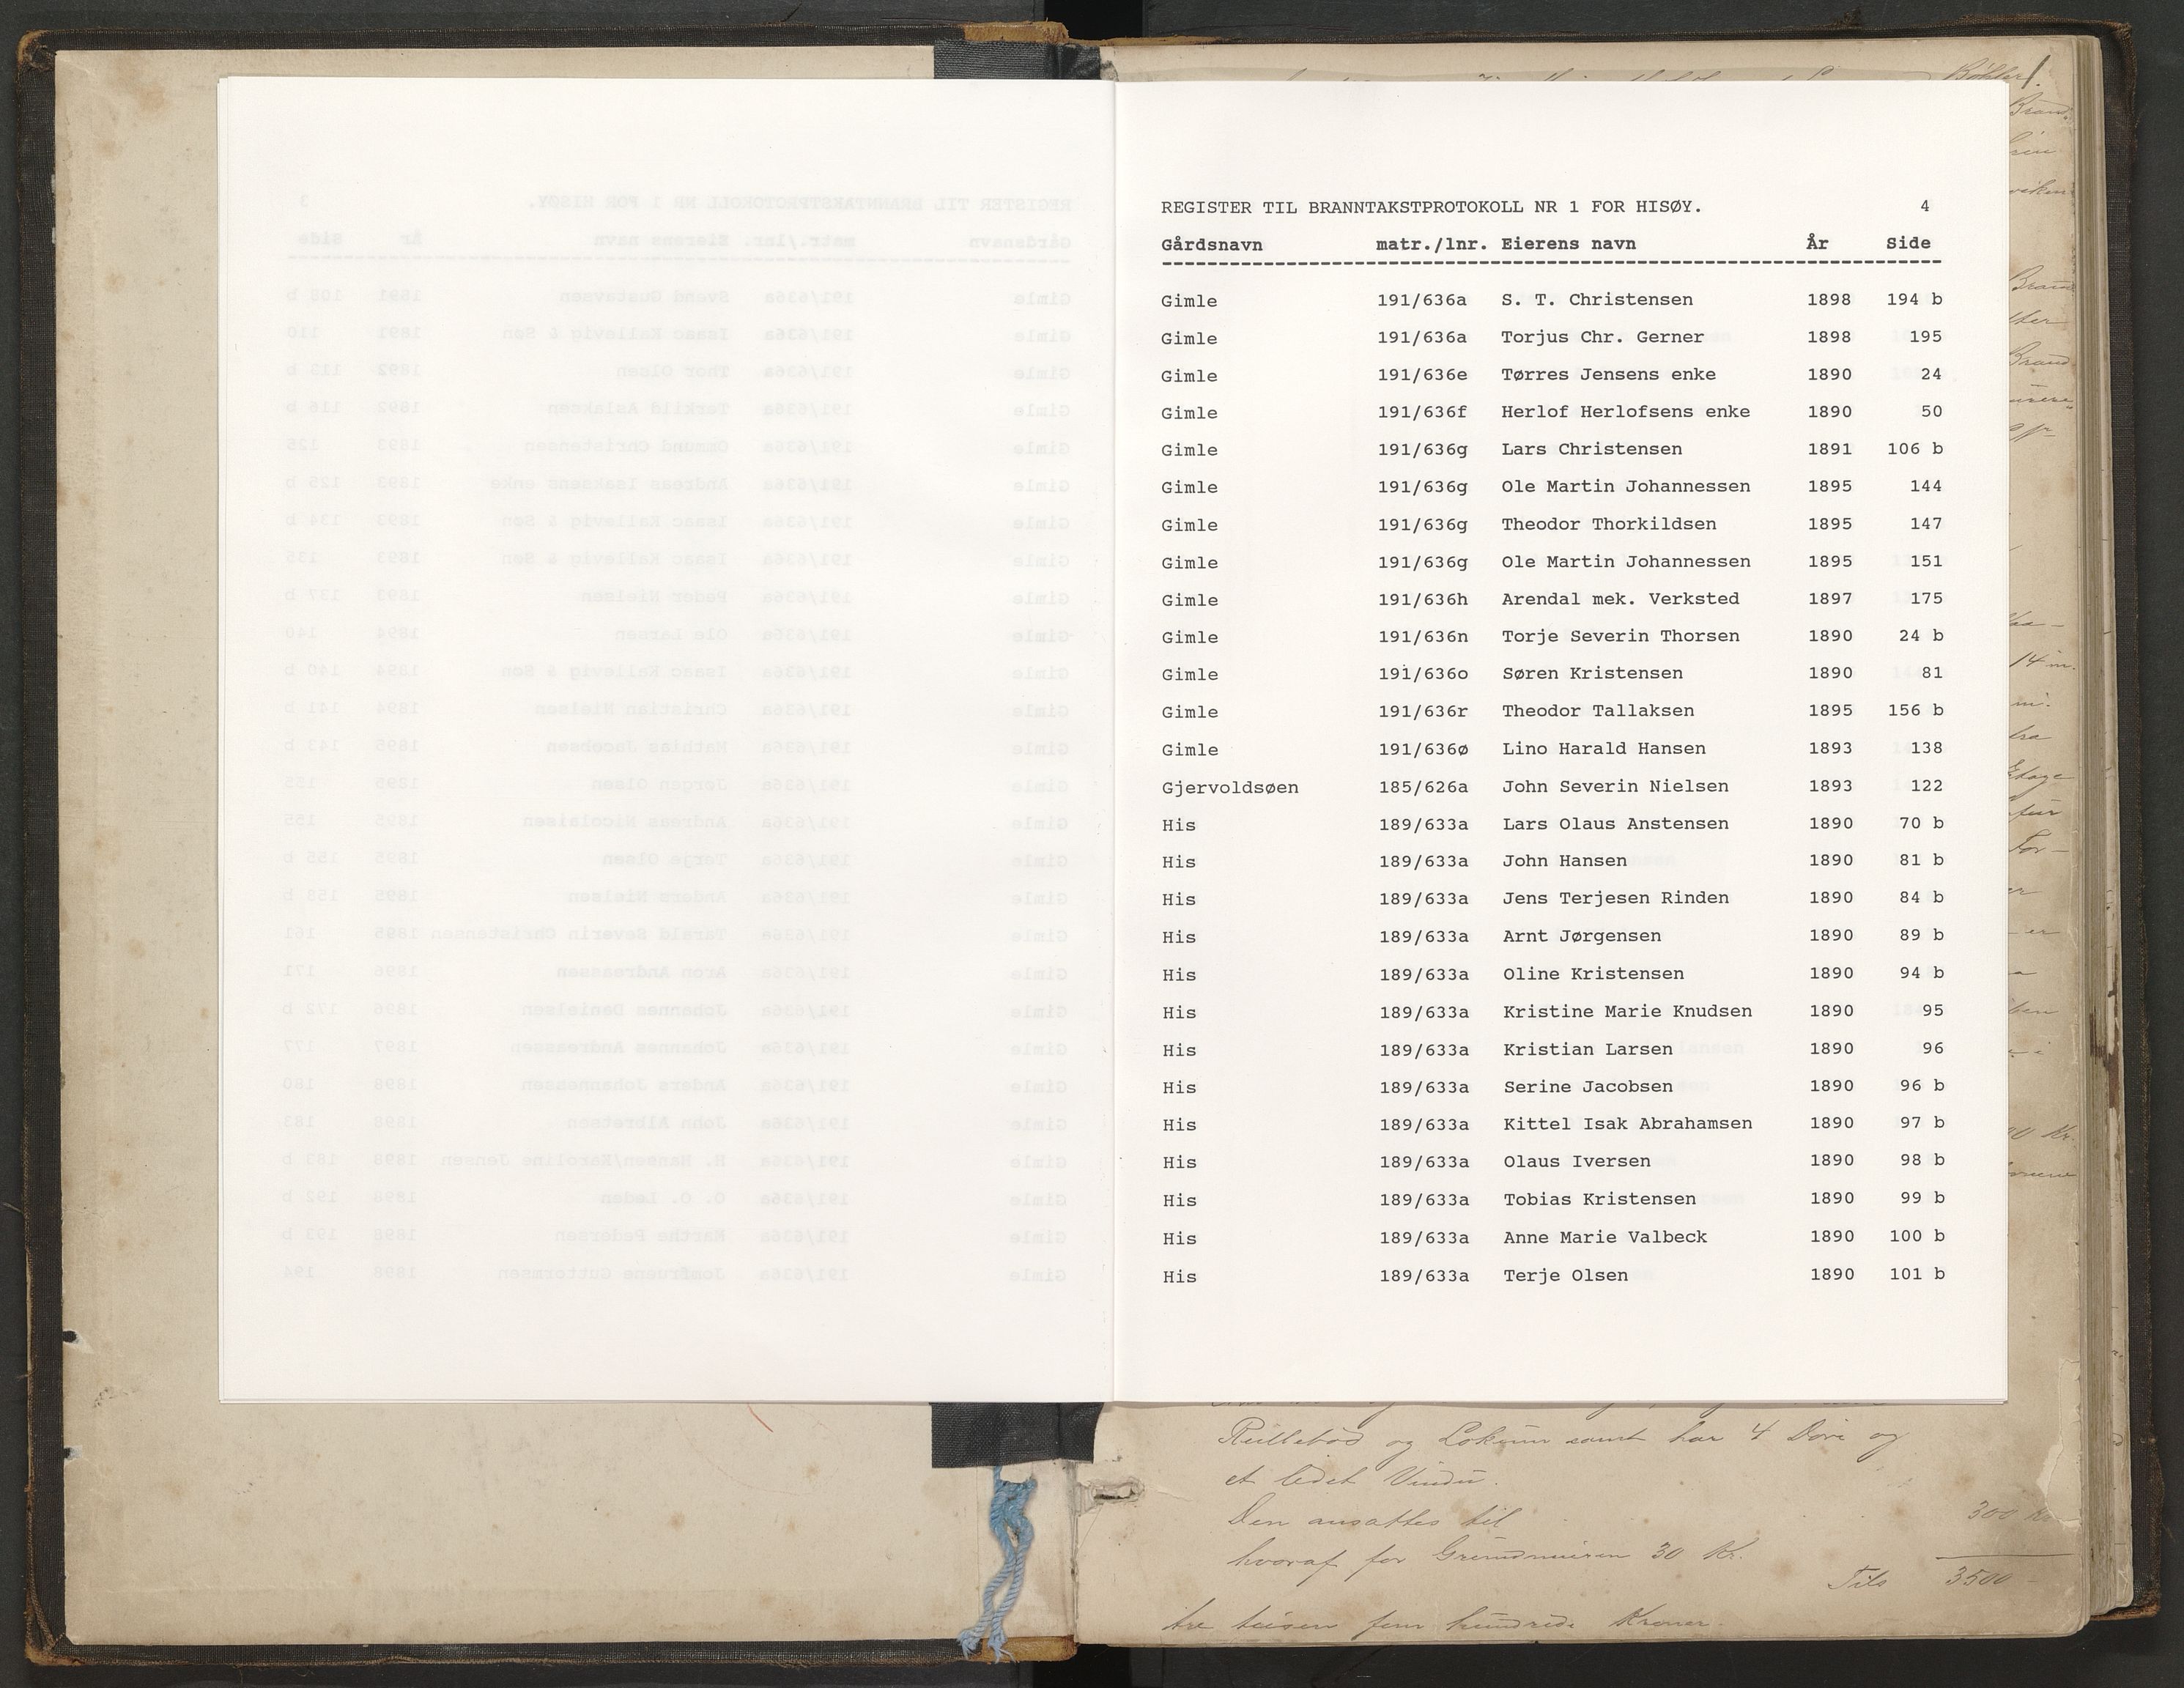 REGISTER TIL BRANNTAKSTPROTOKOLL NR 1 FOR HISØY. 4
Gårdsnavn matr./lnr. Eierens navn År Side
Gimle 191/636a S. T. Christensen 1898 194 b
Gimle 191/636a Torjus Chr. Gerner 1898 195
Gimle 191/636e Tørres Jensens enke 1890 24
Gimle 191/636f Herlof Herlofsens enke 1890 50
Gimle 191/636g Lars Christensen 1891 106 b
Gimle 191/636g Ole Martin Johannessen 1895 144
Gimle 191/636g Theodor Thorkildsen 1895 147
Gimle 191/636g Ole Martin Johannessen 1895 151
Gimle 191/636h Arendal mek. Verksted 1897 175
Gimle 191/636n Torje Severin Thorsen 1890 24 b
Gimle 191/636o Søren Kristensen 1890 81
Gimle 191/636r Theodor Tallaksen 1895 156 b
Gimle 191/636ø Lino Harald Hansen 1893 138
Gjervoldsøen 185/626a John Severin Nielsen 1893 122
His 189/633a Lars Olaus Anstensen 1890 70 b
His 189/633a John Hansen 1890 81 b
His 189/633a Jens Terjesen Rinden 1890 84 b
His 189/633a Arnt Jørgensen 1890 89 b
His 189/633a Oline Kristensen 1890 94 b
His 189/633a Kristine Marie Knudsen 1890 95
His 189/633a Kristian Larsen 1890 96
His 189/633a Serine Jacobsen 1890 96 b
His 189/633a Kittel Isak Abrahamsen 1890 97 b
His 189/633a Olaus Iversen 1890 98 b
His 189/633a Tobias Kristensen 1890 99 b
His 189/633a Anne Marie Valbeck 1890 100 b
His 189/633a Terje Olsen 1890 101 b
og Lokum samt har 4 Döre og
et Vindu.
Den ansattes til 300 Kr
hvoraf for Grundmuren 30 Kr.
Tils 3500 -
tre tusen fem hundrede Kroner.